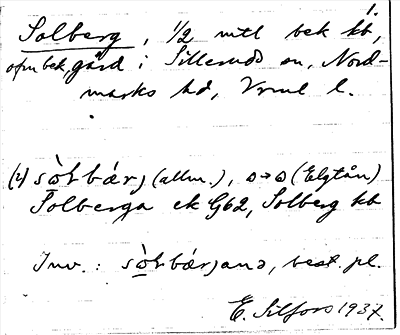 1.
Solberg, 1/2 mtl bek kb,
ofm bek, gård i Silleruds sn, Nord-
marks hd, Vrml l.
(2) sòɫbǽrj (allm.), o→ɷ (Elgtån)
Solberga ek G62, Solberg kb
Inv.: sòɫbǽrjana, best pl.
E. Silfors 1937.